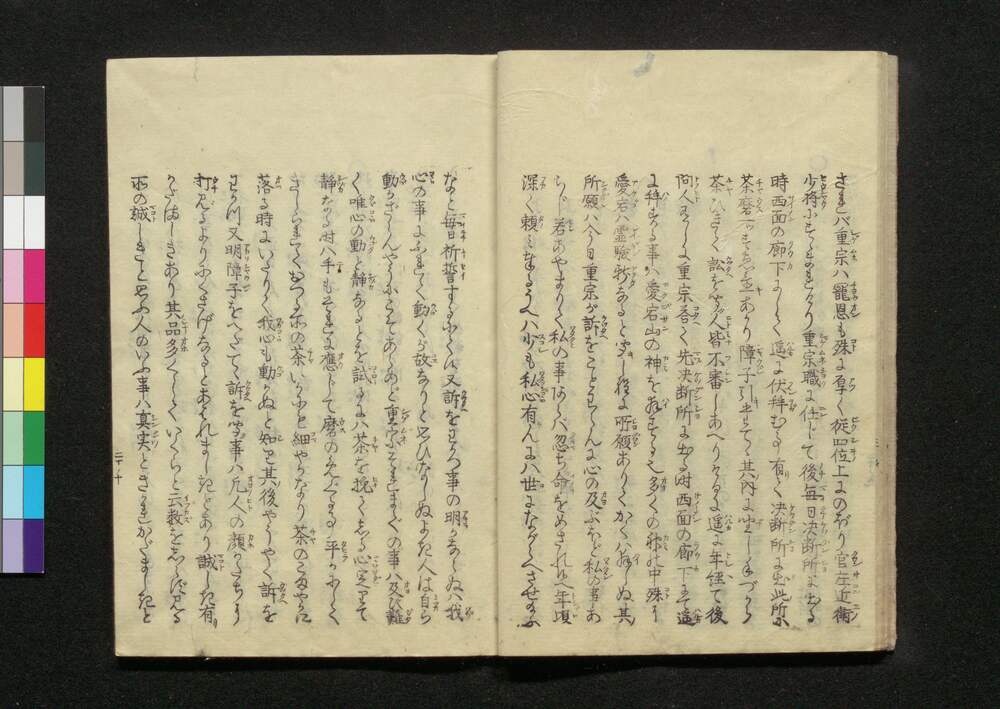 されバ重宗ハ寵恩も殊に厚く従四位上にのぼり官左近衛
少将にすゝめられけり重宗職に任じて後毎日決断所に出る
時西面の廊下にして遥に伏拝む事有て決断所に出此所に
茶磨一ツすゑ置あかり障子引立て其内に坐し手づから
茶ひきて訟を聞人皆不審しあへりけるに遥に年経て後
問人ありしに重宗答て先決断所に出る時西面の廊下にて遥
に拝する事ハ愛宕山の神を拝する也多くの神の中殊に
愛宕ハ霊験新なると聞し程に所願ありてかくハ拝しぬ其
所願ハ今日重宗が訴をことわらんに心の及ぶほど私の事あ
らじ若あやまりて私の事あらバ忽ち命をめされ候へ年頃
深く頼ミ奉るうへハ少も私心有んにハ世にながらへさせ給ふ
なと毎日祈誓する也又訴をわかつ事の明かならぬハ我
心の事にふれて動くが故なりと思ひなしぬよき人は自ら
動かざらんやうにこそあるめれど重宗それまでの事ハ及び難
く唯心の動と静なるとを試るにハ茶を挽てしる心定まりて
静なる時ハ手もそれに応じて磨のめぐる事平かにして
きしられておつる所の茶いかにも細やかなり茶のこまやかに
落る時にいたりて我心も動かぬと知これ其後やうやく訴を
わかつ又明障子をへだてて訴を聞事ハ凡人の顔かたちを
打見るよりにくさげなるとあはれましきとあり誠しき有
かだましきあり其品多くしていくらと云数をしらず見る
所の誠しきと思ふ人のいふ事ハ真実ときこえかだましきと